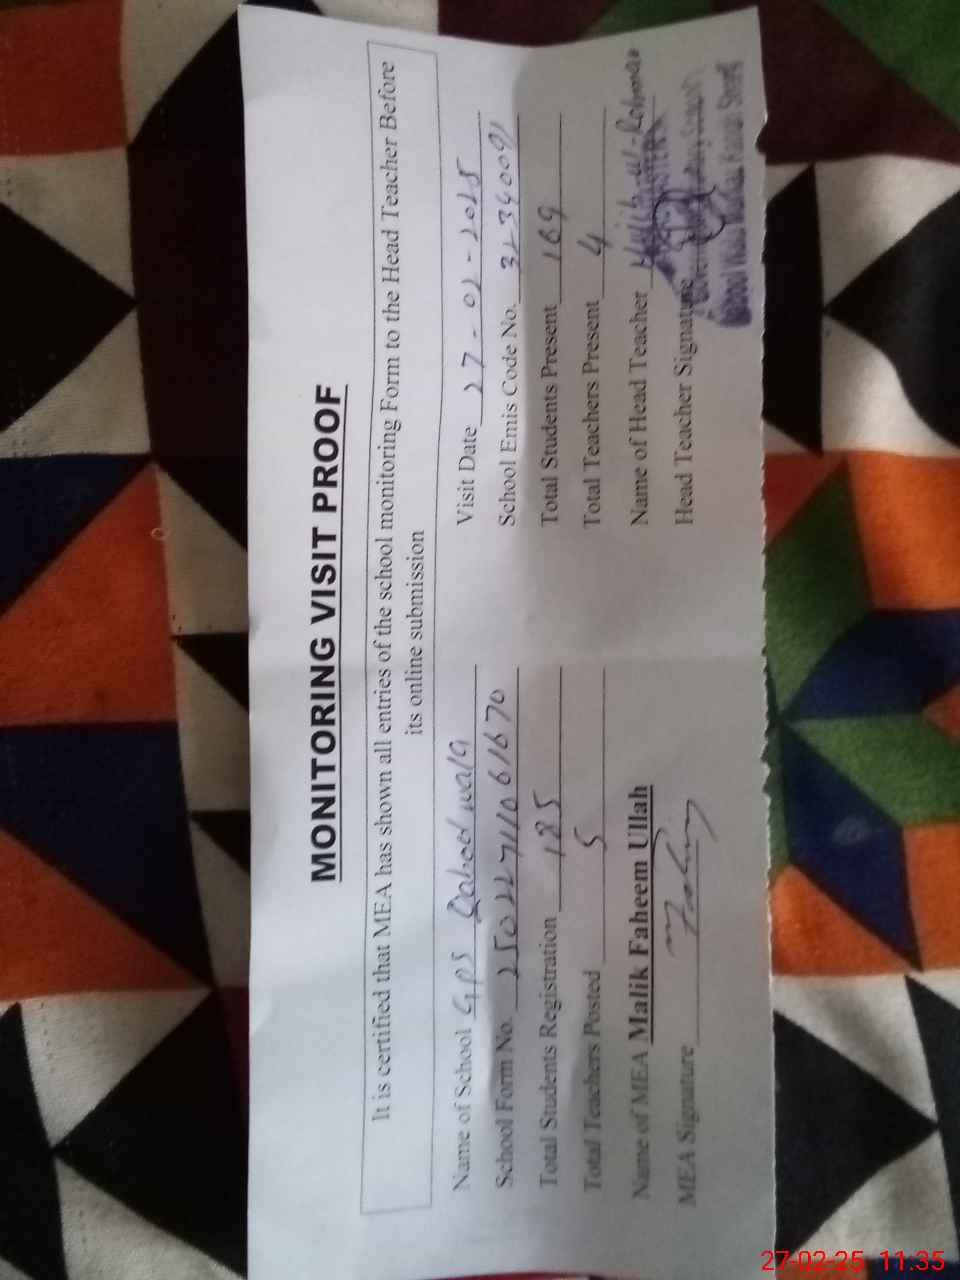 MONITORING VISIT PROOF
It is certified that MEA has shown all entries of the school monitoring Form to the Head Teacher Before
its online submission
Name of School GPS Qabool wala Visit Date 27-02-2025
School Form No. 250227110616170 School Emis Code No. 32340091
Total Students Registration 185 Total Students Present 169
Total Teachers Posted 5 Total Teachers Present 4
Name of MEA Malik Faheem Ullah Name of Head Teacher Mujib-ul-Rehman
MEA Signature Head Teacher Signature
27-02-25 11:35